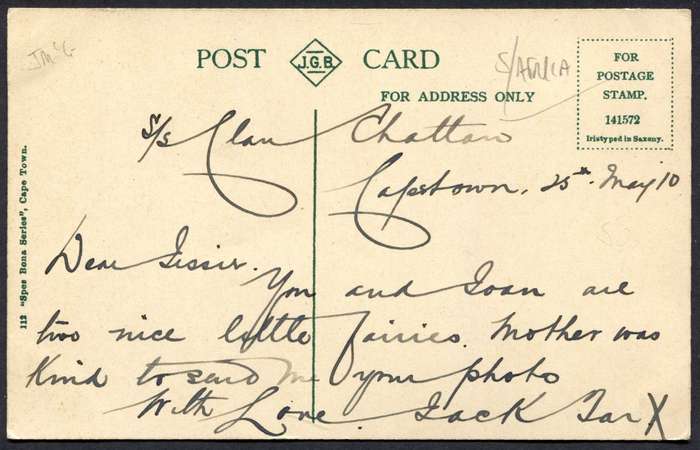 JMcG
POST J.G.B. CARD
S/AFRICA
FOR ADDRESS ONLY
FOR
POSTAGE
STAMP.
141572
Iristyped in Saxony.
112 "Spes Bona Series", Cape Town.
S/s Clan Chattan
Capetown, 25th May 10
Dear Jessie.
You and Joan are
two nice little fairies. Mother was
kind to send me your photo
With Love. Jack Tar X